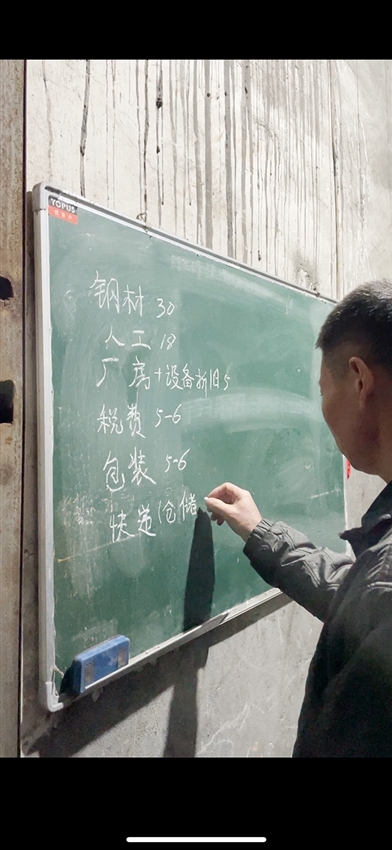 YOPUS
钢材 30
人工 18
厂房+设备折旧5
税费 5-6
包装 5-6
快递(仓储